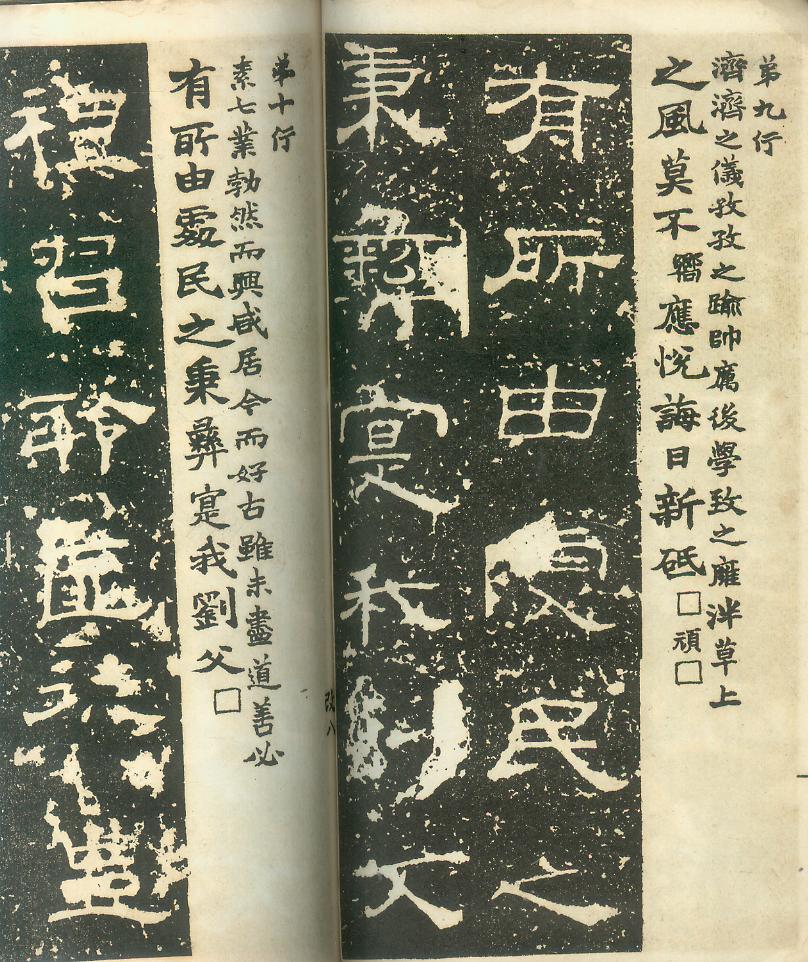 第九行
濟濟之儀孜孜之踰帥厲後學致之雍泮草上
之風莫不嚮應悅誨日新砥□頑□
有所由處民之
秉彝寔我劉父
第十行
素七業勃然而興咸居今而好古雖未盡道善必
有所由處民之秉彝寔我劉父□
改八
禮習聆